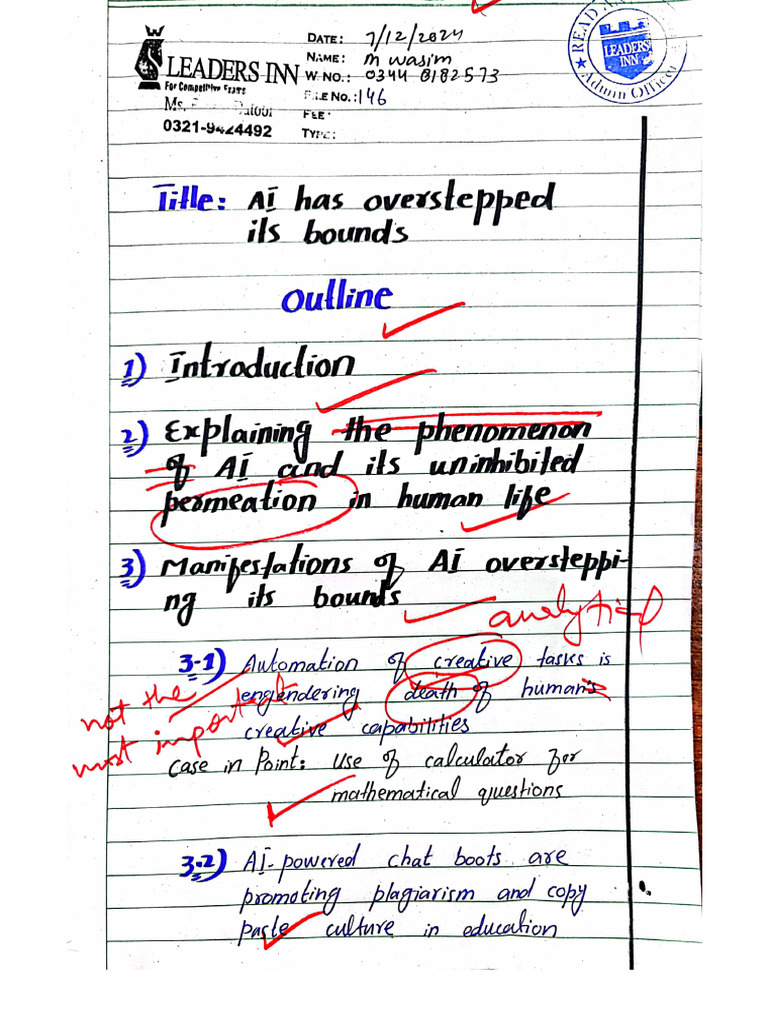 DATE: 7/12/2024
NAME: M Wasim
W NO.: 0344 8182573
FILE No.: 146
FEE:
TYPE:
LEADERS INN
For Competitive Exams
Ms.
0321-9424492
READ AN
LEADERS INN
Admin Officer
Title: AI has overstepped
its bounds
Outline
1) Introduction
2) Explaining the phenomenon
of AI and its uninhibited
permeation in human life
3) Manifestations of AI oversteppi-
ng its bounds
analytical
3-1) Automation of creative tasks is
engendering death of human's
creative capabilities
not the
most important
Case in Point: Use of calculator for
mathematical questions
3.2) AI-powered chat boots are
promoting plagiarism and copy
paste culture in education